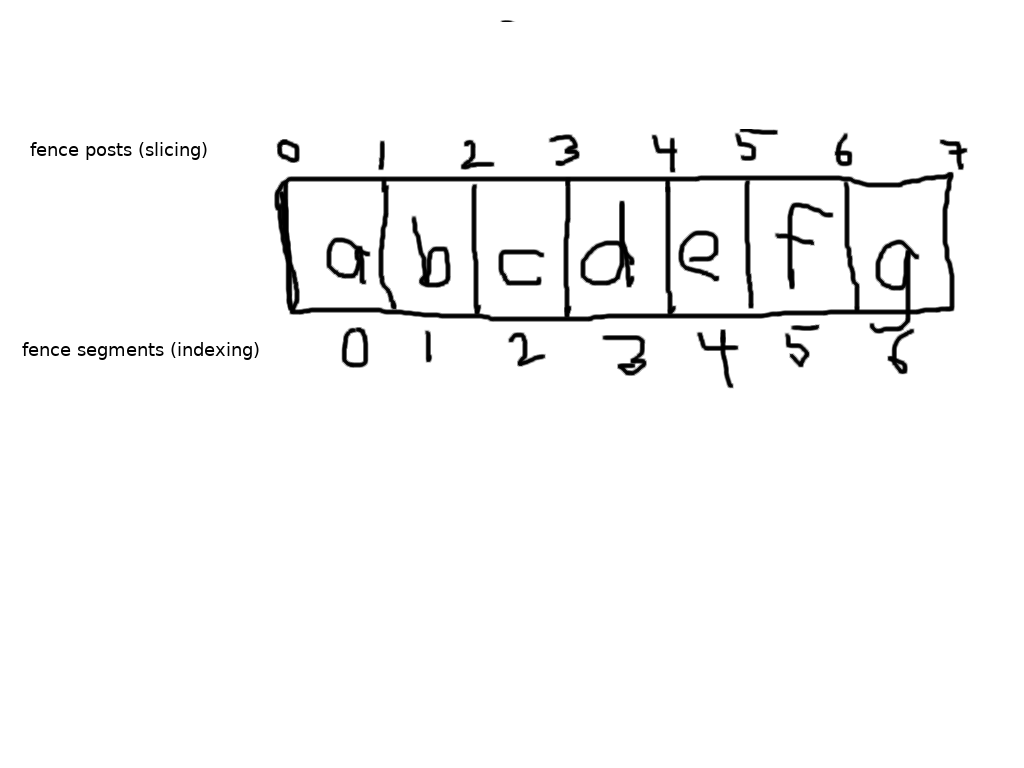 fence posts (slicing) 0 1 2 3 4 5 6 7
a b c d e f g
fence segments (indexing) 0 1 2 3 4 5 6